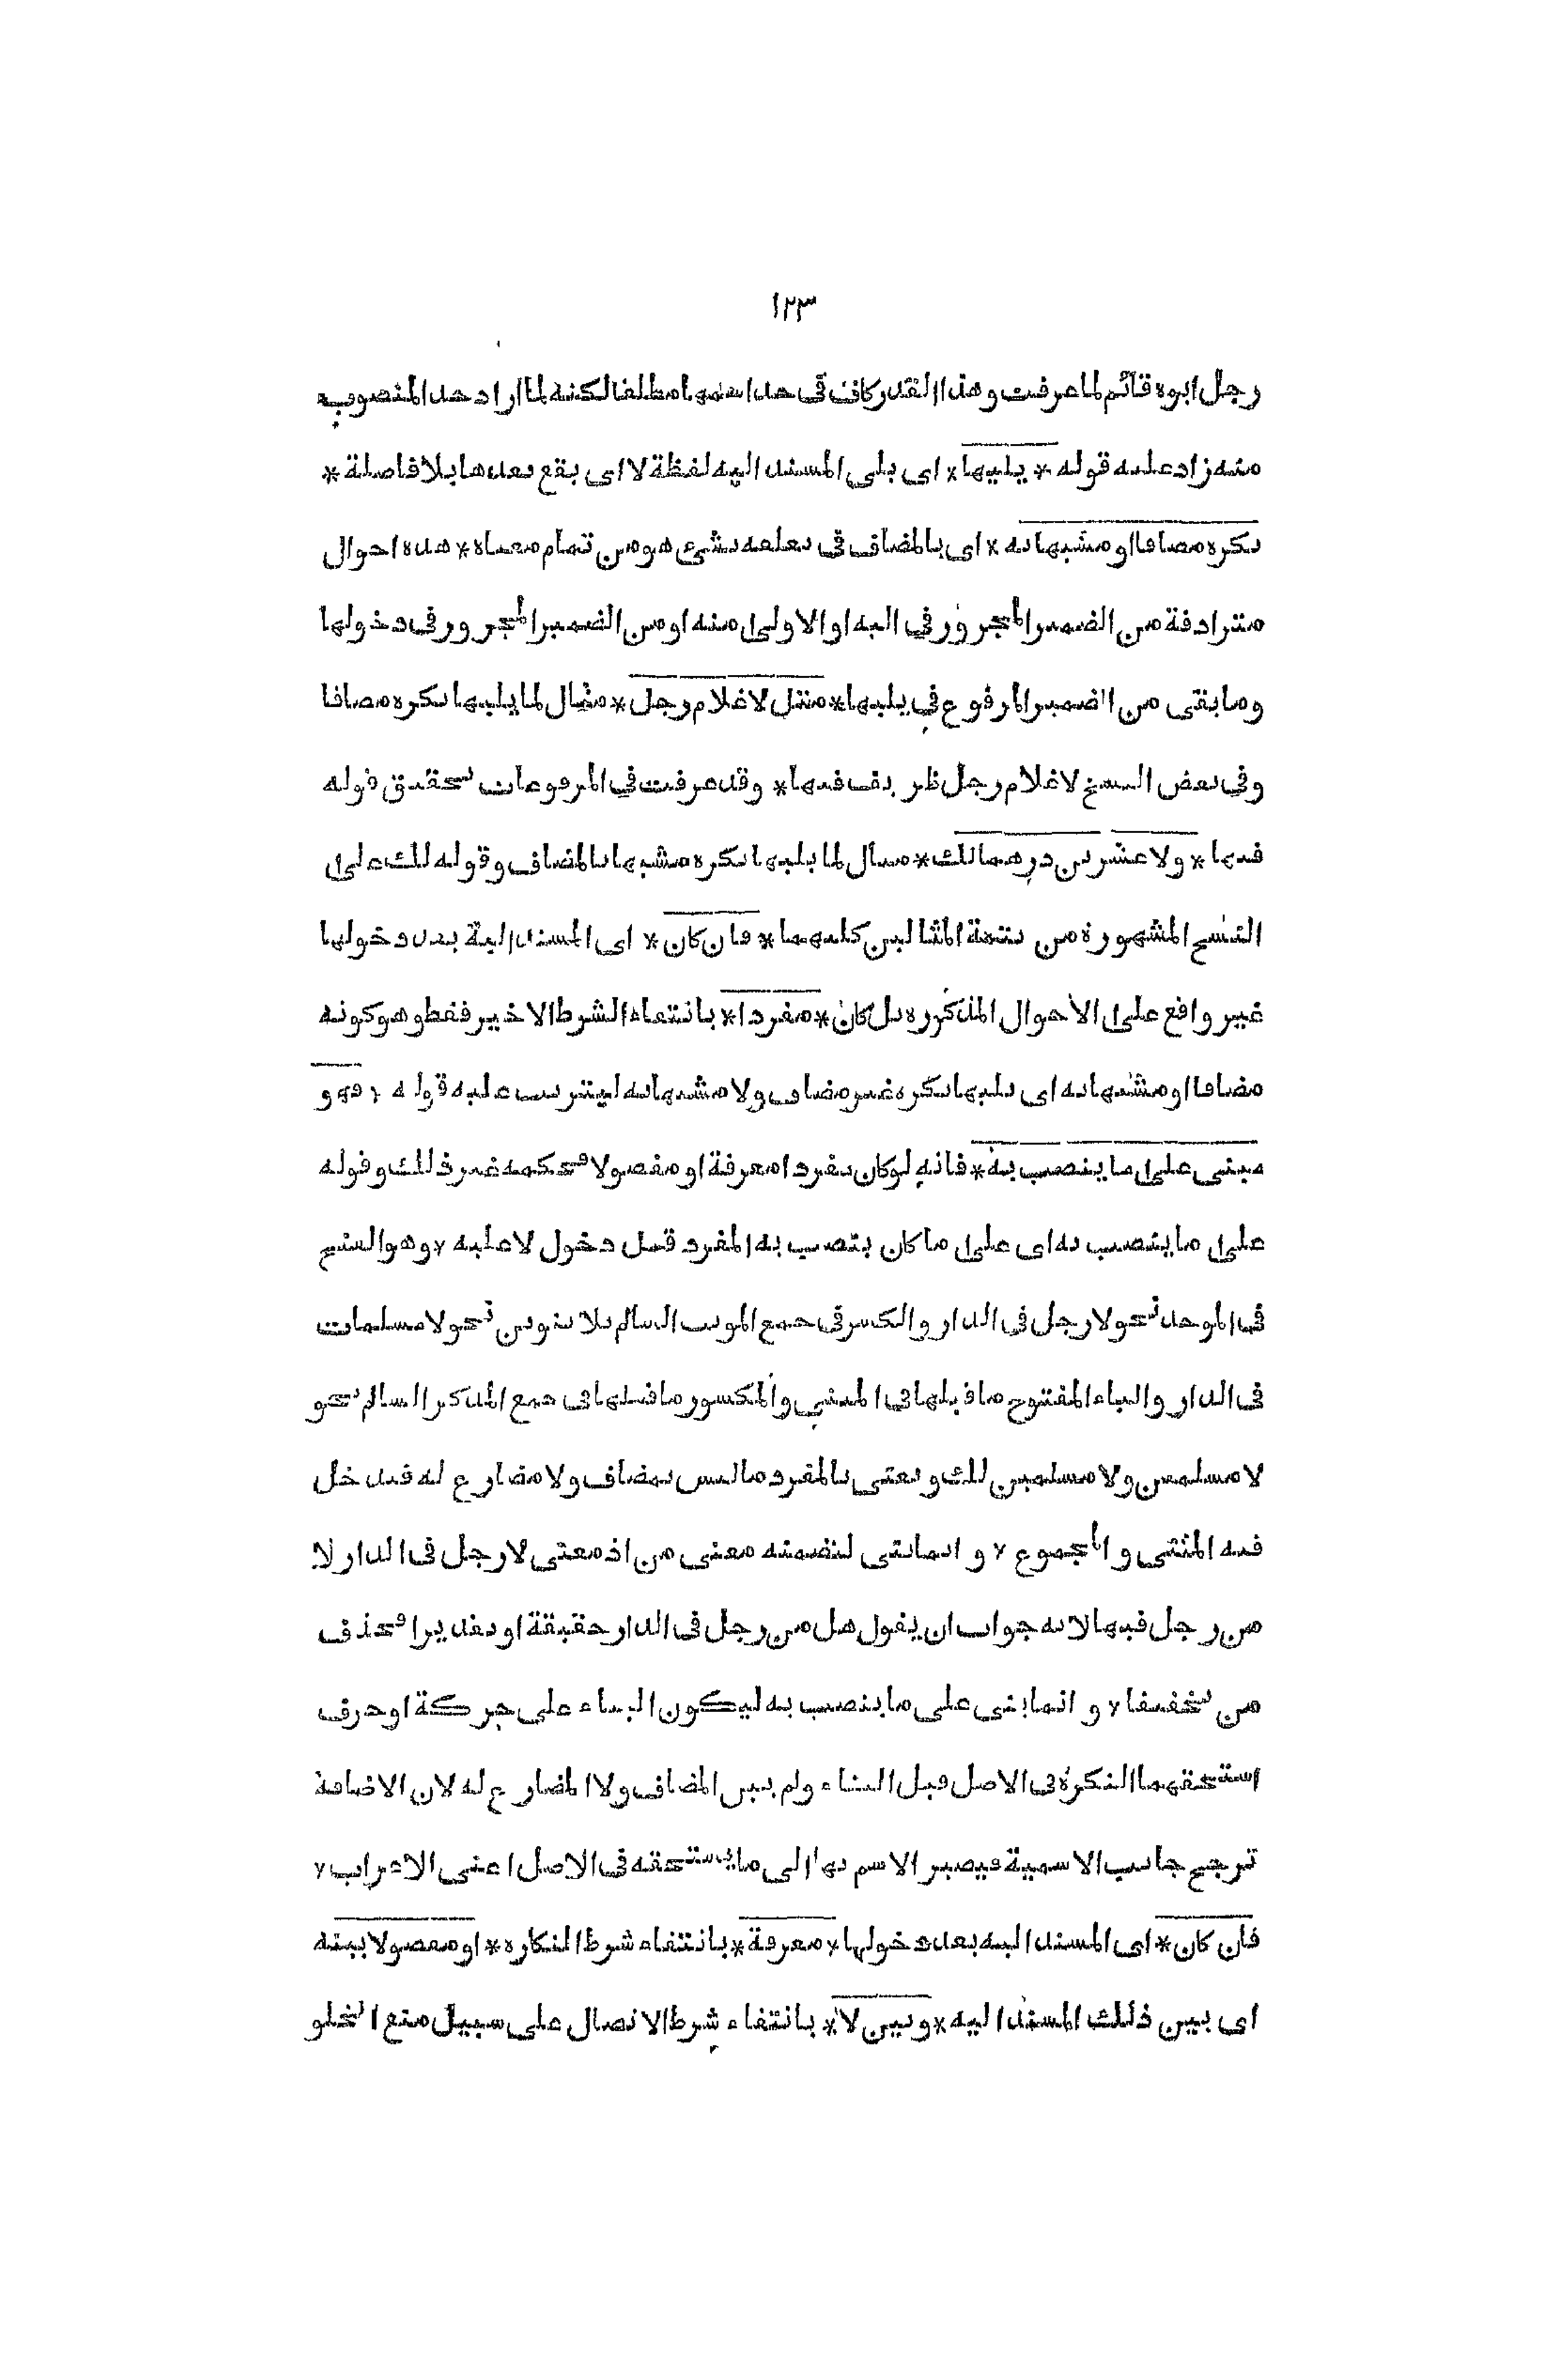 ١٢٣
رجل ابوه قائم لما عرفت وهذا القدر كاف في حد اسمها مطلقا لكنه لما اراد حد المنصوب
منه زاد عليه قوله * يليها * اى يلى المسند اليه لفظة لا اى يقع بعدها بلا فاصلة *
نكرة مضافا او مشبها به * اى بالمضاف في تعلقه بشئ هو من تمام معناه * هذه احوال
مترادفة من الضمير المجرور في اليه او الاولى منه او من الضمير المجرور فى دخولها
وما بقى من الضمير المرفوع في يليها * مثل لا غلام رجل * مثال لما يليها نكرة مضافا
وفي بعض النسخ لا غلام رجل ظريف فيها * وقد عرفت في المرفوعات تحقيق قوله
فيها * ولا عشرين درهما لك * مثال لما يليها نكرة مشبها بالمضاف وقوله لك على
النسخ المشهورة من تتمة المثالين كليهما * فان كان * اى المسند اليه بعد دخولها
غير واقع على الاحوال المذكورة بل كان * مفردا * بانتفاء الشرط الاخير فقط وهو كونه
مضافا او مشبها به اى يليها نكرة غير مضاف ولا مشبها به ليترتب عليه قوله * فهو
مبنى على ما ينصب به * فانه لو كان مفردا معرفة او مفصولا فحكمه غير ذلك وقوله
على ما ينصب به اى على ما كان ينصب به المفرد قبل دخول لا عليه * وهو الفتح
في الموحد نحو لا رجل فى الدار والكسر في جمع المونث السالم بلا تنوين نحو لا مسلمات
فى الدار والياء المفتوح ما قبلها فى المثنى والمكسور ما قبلها فى جمع المذكر السالم نحو
لا مسلمين ولا مسلمين لك ونعنى بالمفرد ما ليس بمضاف ولا مضارع له فيدخل
فيه المثنى والمجموع * وانما بنى لتضمنه معنى من اذ معنى لا رجل فى الدار لا
من رجل فيها لانه جواب ان يقول هل من رجل فى الدار حقيقة او تقديرا فحذف
من تخفيفا * وانما بنى على ما ينصب به ليكون البناء على حركة او حرف
استحقهما النكرة فى الاصل قبل البناء ولم يبن المضاف ولا المضارع له لان الاضافة
ترجح جانب الاسمية فيصير الاسم بها الى ما يستحقه فى الاصل اعنى الاعراب *
فان كان * اى المسند اليه بعد دخولها * معرفة * بانتفاء شرط النكارة * او مفصولا بينه
اى بين ذلك المسند اليه * وبين لا * بانتفاء شرط الاتصال على سبيل منع الخلو